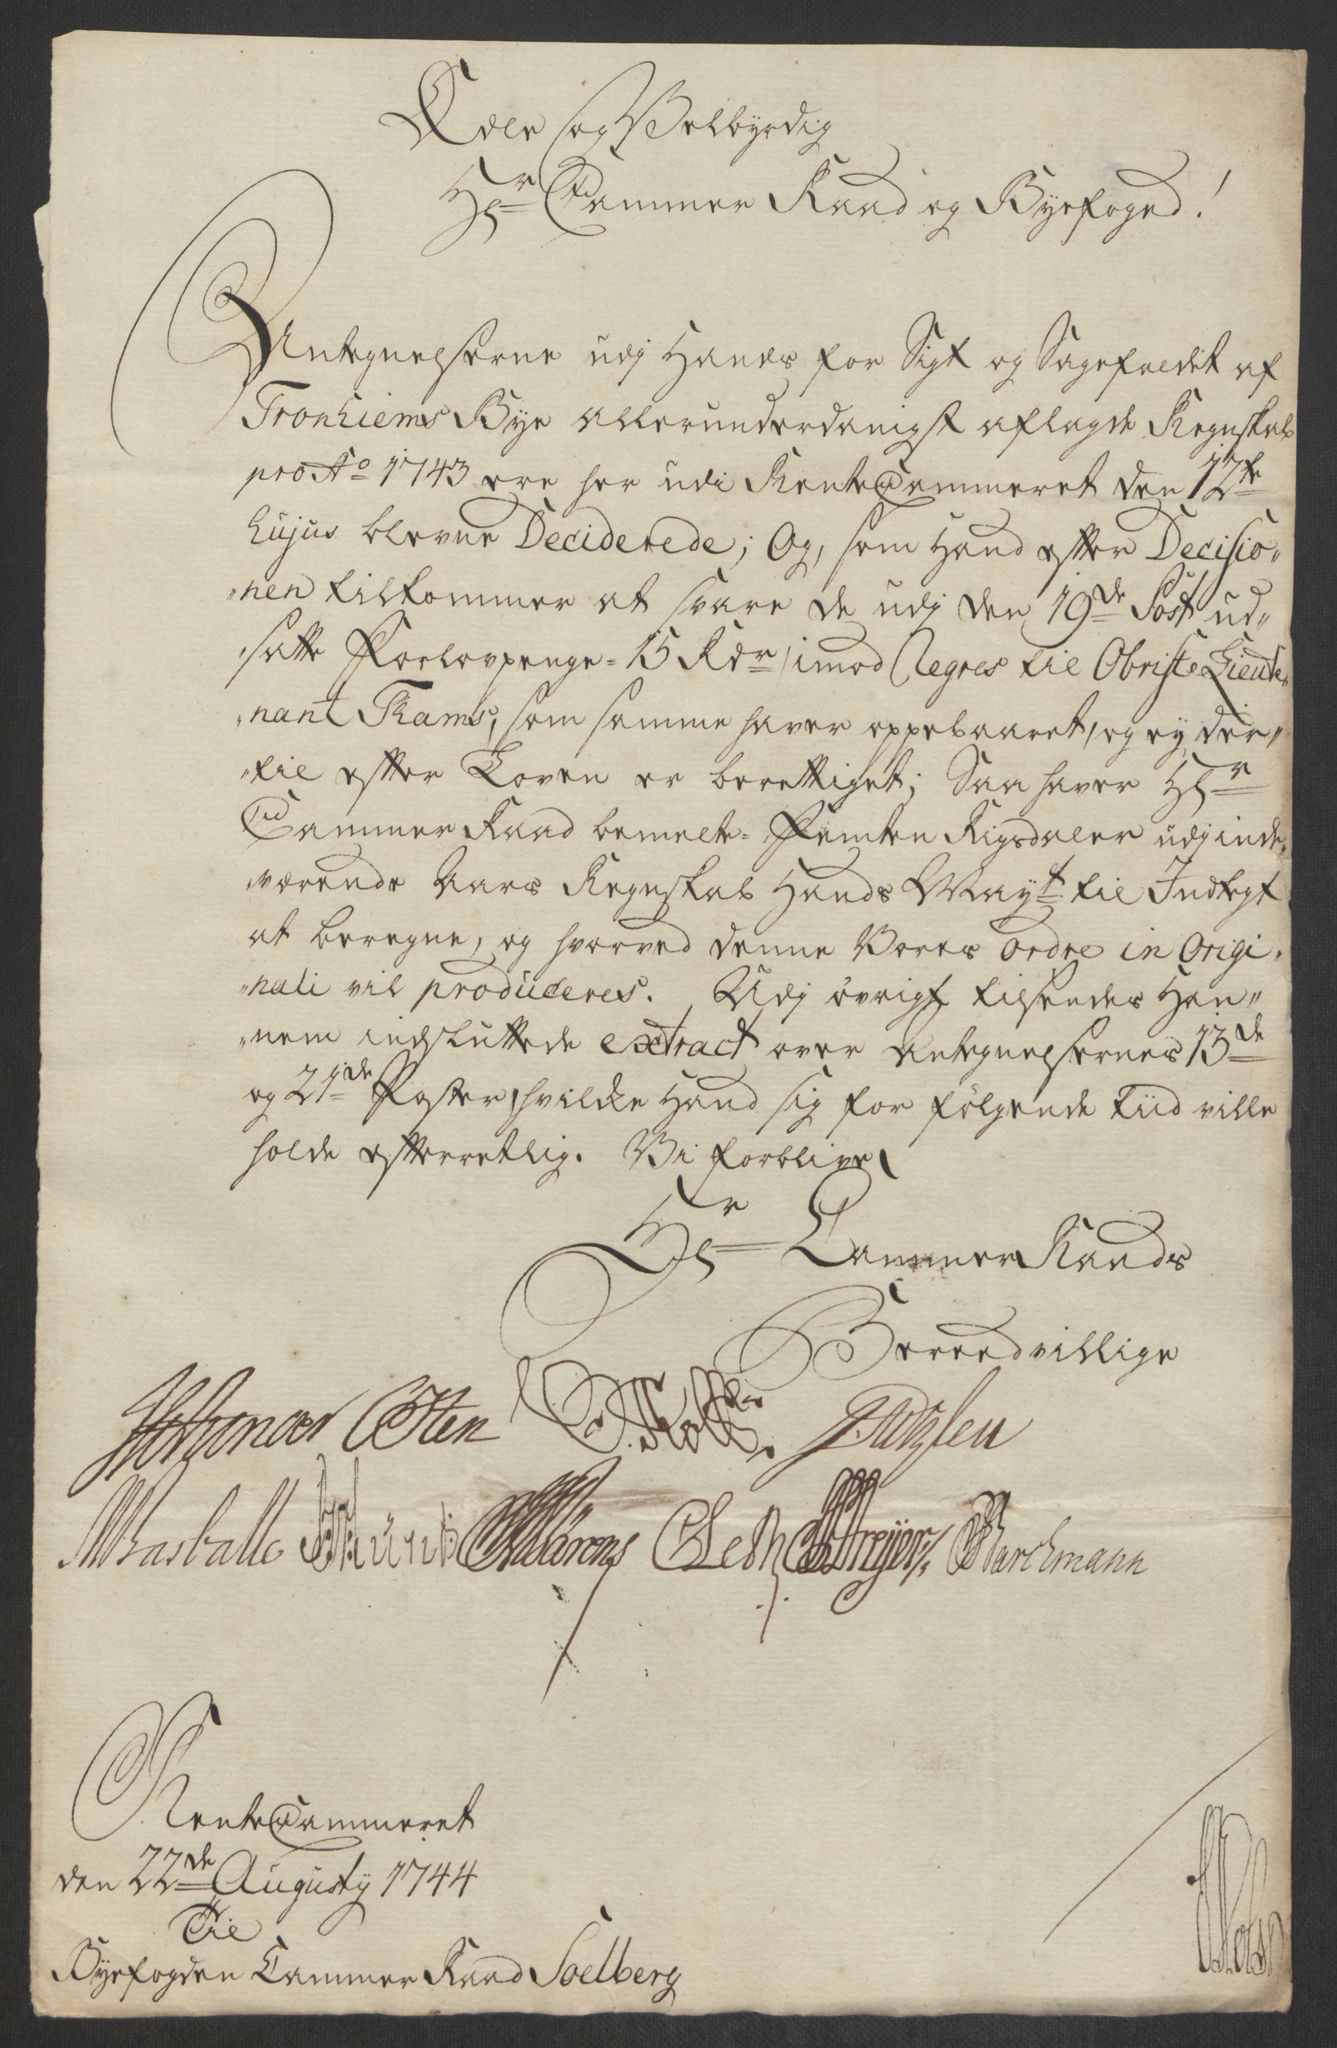 Ædle og Velbyrdig
Hr Cammer Raad og Byefoged!
Antegnelserne udj Hands for Sigt og Sagefaldet af
Tronhiems Bye allerunderdanigst aflagde Regnskab
pro Ao 1743 ere her udi RenteCammeret den 12te
hujus blevne Deciderede; Og, som Hand efter Decisio-
-nen tilkommer at svare de udj den 19de Post ud-
satte Forlovpenge - 15 Rdr, imod Regres til ObristeLieute-
-nant Rams, som samme haver oppebaaret, og ey der-
-til efter Loven er berettiget; Saa haver Hr
Cammer Raad bemelte - Femten Rigsdaler udj inde-
værende Aars Regnskab Hands Mayt til Indtegt
at beregne, og hvorved denne Vores Ordre in Origi-
-nali vil produceres. Udj övrigt tilsendes Han-
-nem indsluttede Extract over Antegnelsernes 13de
og 21de Poster, hvilcke Hand sig for følgende tiid ville
holde efterretlig. Vi forblive
Hr Cammer Raads
Beredvillige
Østen
Basballe Ahlörens Leth Dreyer Barchmann
RenteCammeret
den 22de Augusty 1744
Til
Byefogden Cammer Raad Soelberg